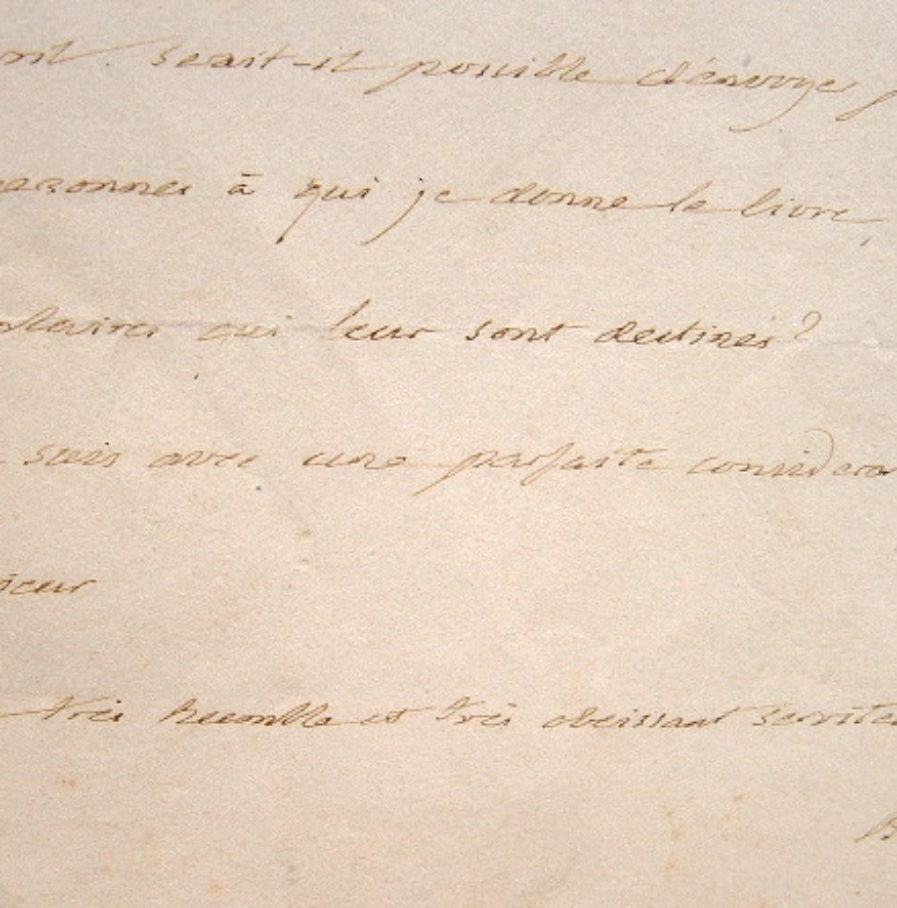 seait-il possible d'envoyer
personnes à qui je donne le livre,
plaires qui leur sont destinés?
suis avec une parfaite considera
sieur
très humble et très obeissant servite